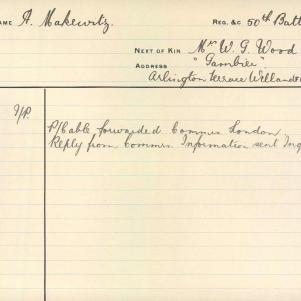 NAME A. Makewitz. REG. &C 50th Batt
NEXT OF KIN Mr W. G. Wood
ADDRESS "Gambier"
Arlington Terrace Welland
P/Cable forwarded Commrs London
Reply from Commrs. Information sent Inq